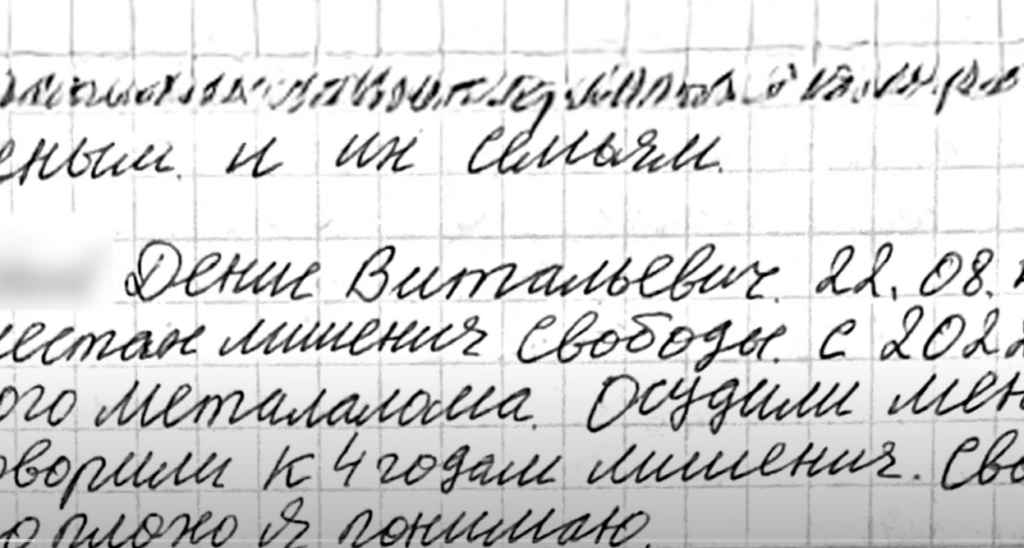 еным и их семьям.
Денис Витальевич 22.08.
местах лишения свободы. с 2022
ого металалома. Осудили мен
оворили к 4 годам лишения. сво
о плохо я понимаю